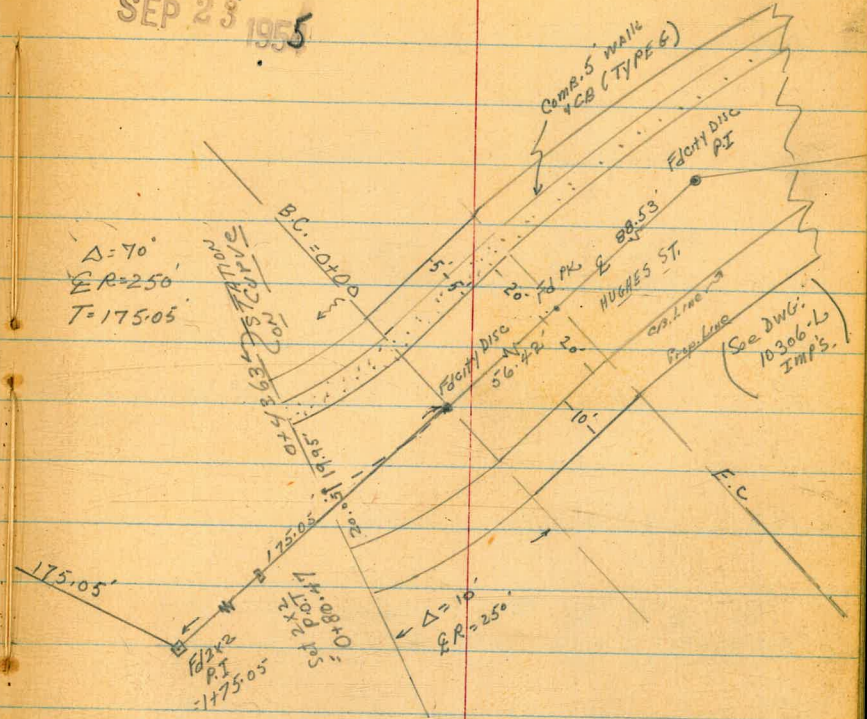 SEP 23 1955
COMB. 5' WALK
& CB (TYPE G)
Fd City Disc
P.I
B.C. = 0+00
Δ = 70°
℄ R = 250'
T = 175.05'
0+43.63 STATION
ON CURVE
5'
5'
20'
Fd PK.
℄
88.53'
HUGHES ST.
CB. Line
Prop. Line
(See DWG.
10306-L
IMP'S.)
Fd City Disc
56.42'
20'
10'
E.C
19.95'
20.05'
175.05'
175.05'
Set 2x2
P.O.T
= 0+80.47
Δ = 10°
℄ R = 250'
Fd 2x2
P.I
= 1+75.05